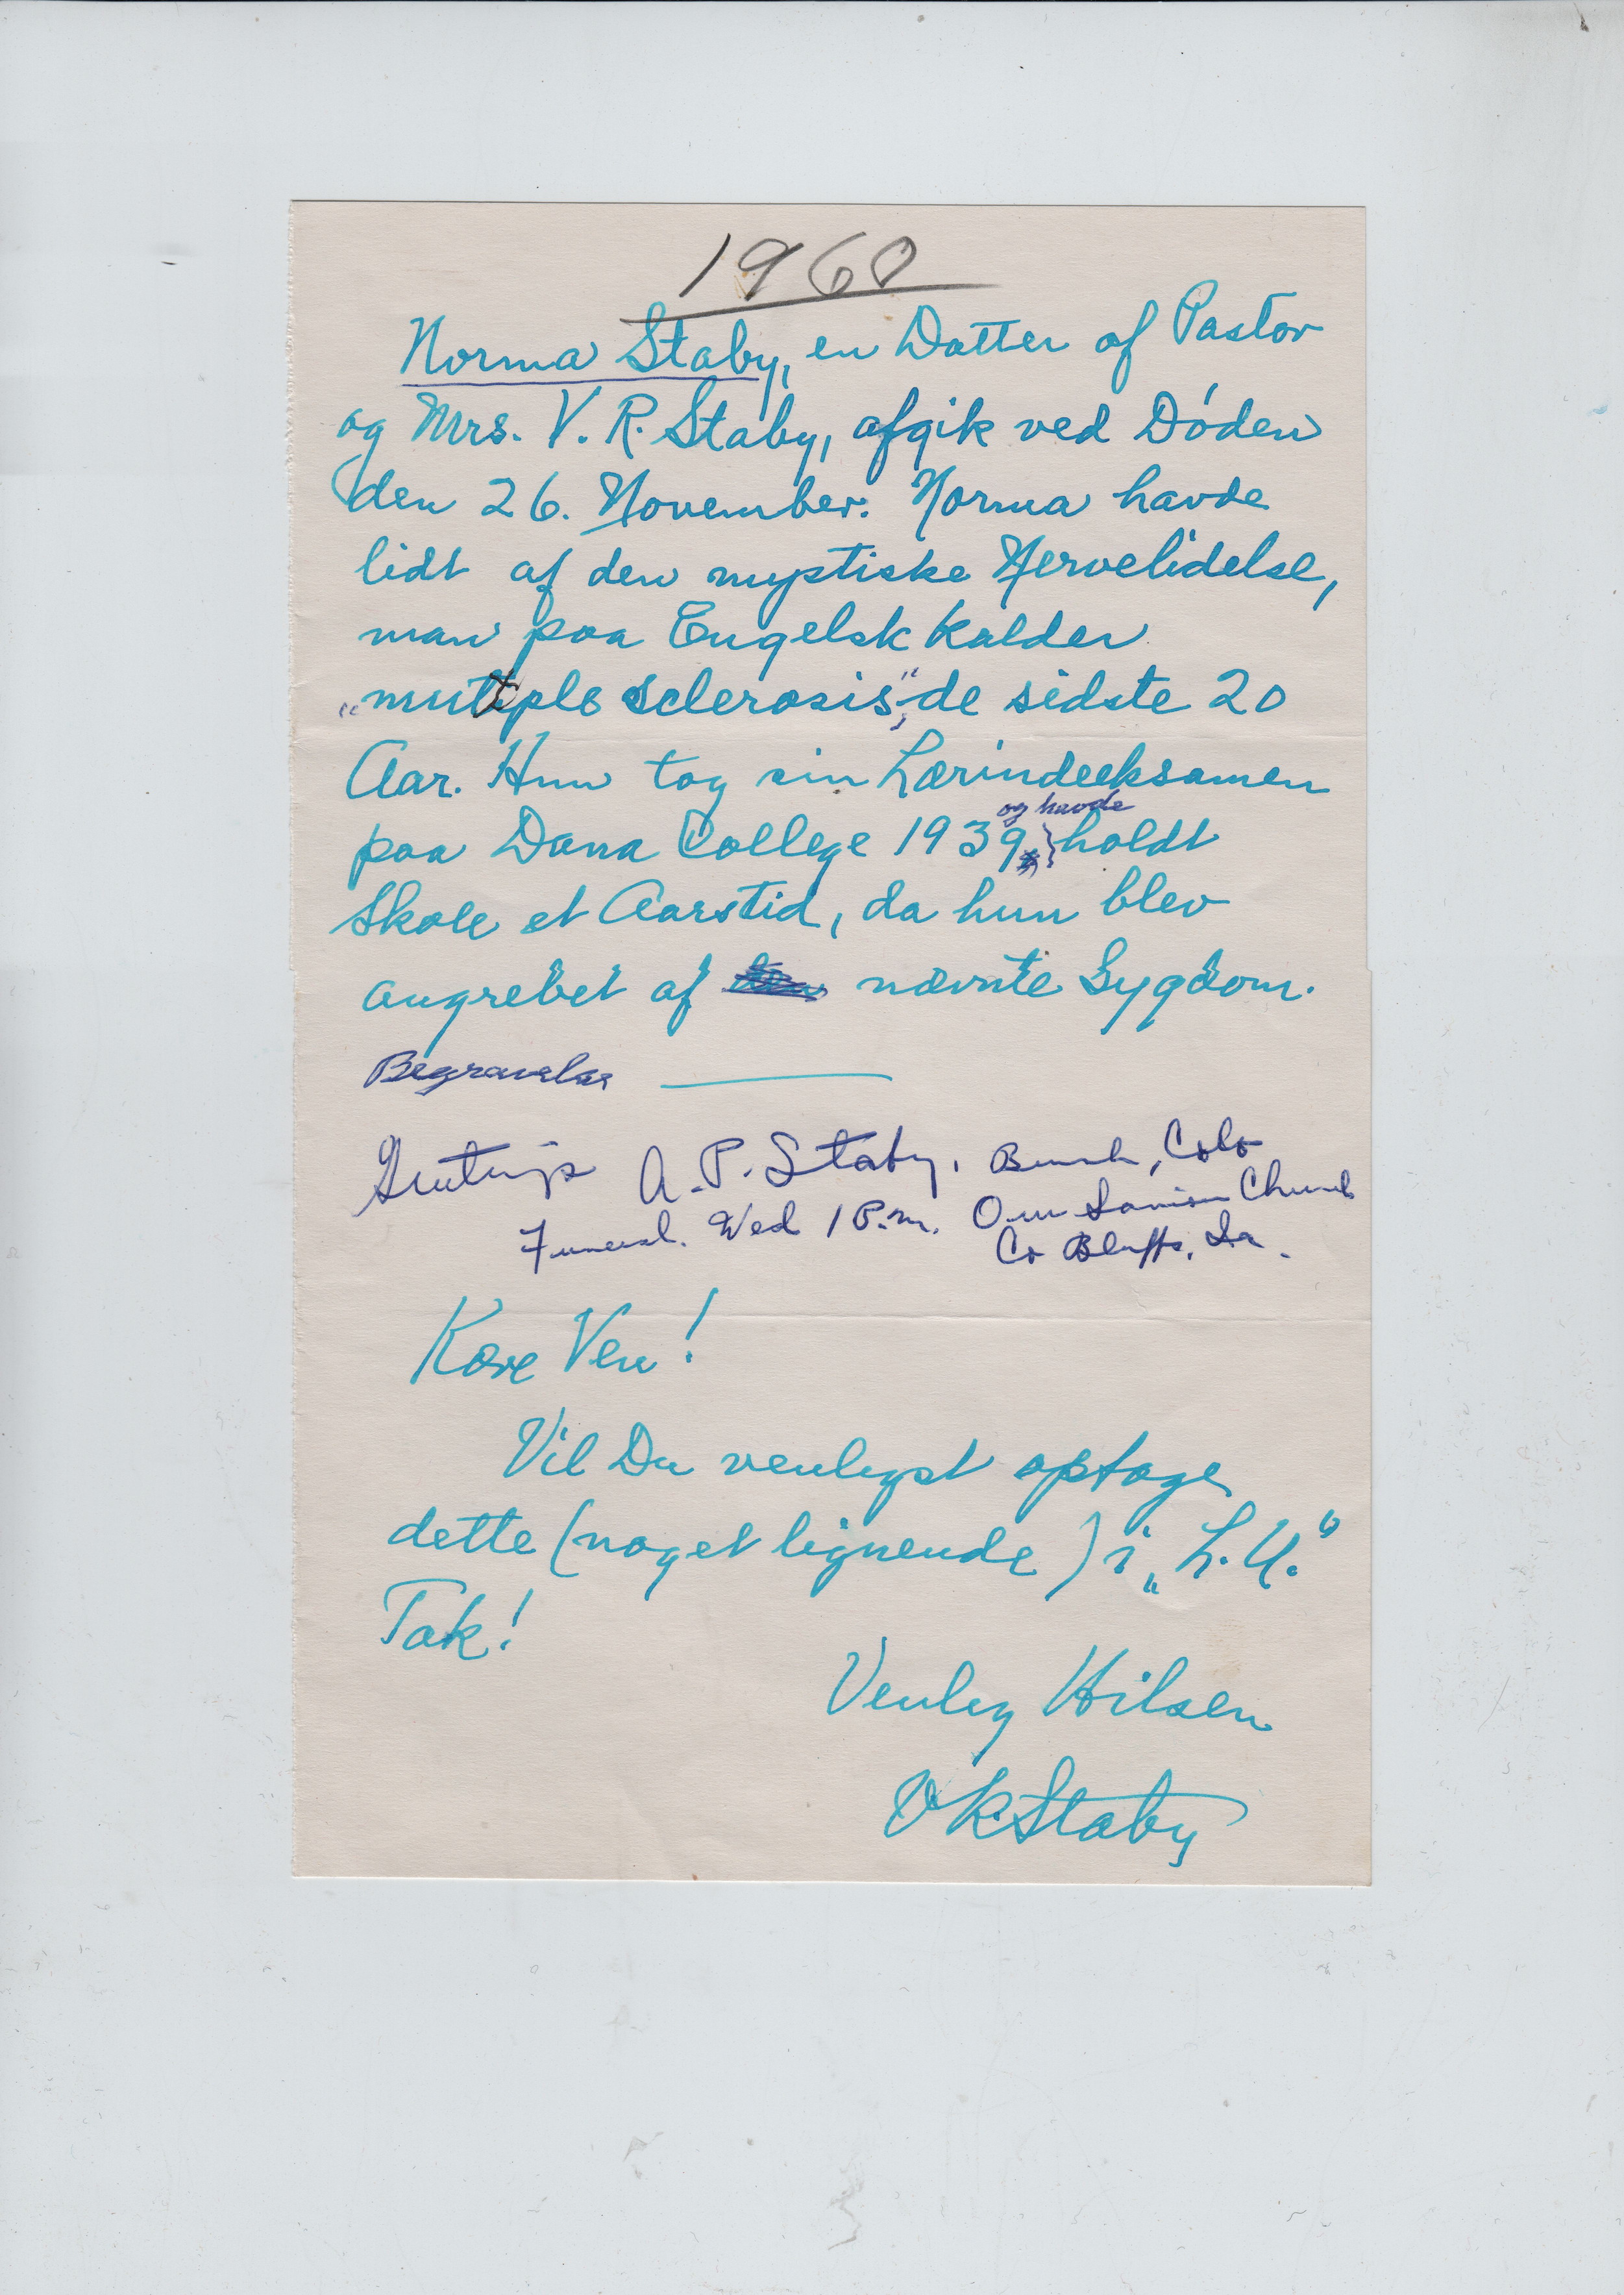 1960
Norma Staby, en Datter af Pastor
og Mrs. V. R. Staby, afgik ved Døden
den 26. November. Norma havde
lidt af den mystiske Nervelidelse,
man paa Engelsk kalder
„mutiple sclerosis", de sidste 20
Aar. Hun tog sin Lærindeeksamen
og havde
paa Dana College 1939, holdt
Skole et Aarstid, da hun blev
angrebet af nævnte Sygdom.
Begravelse
A. P. Staby, Brush, Colo
Funeral. Wed 1 P.m. Our Savior Church
Co Bluffs, Ia.
Kære Ven!
Vil Du venligst optage
dette (noget lignende) i „L. U."
Tak!
Venlig Hilsen
VRStaby